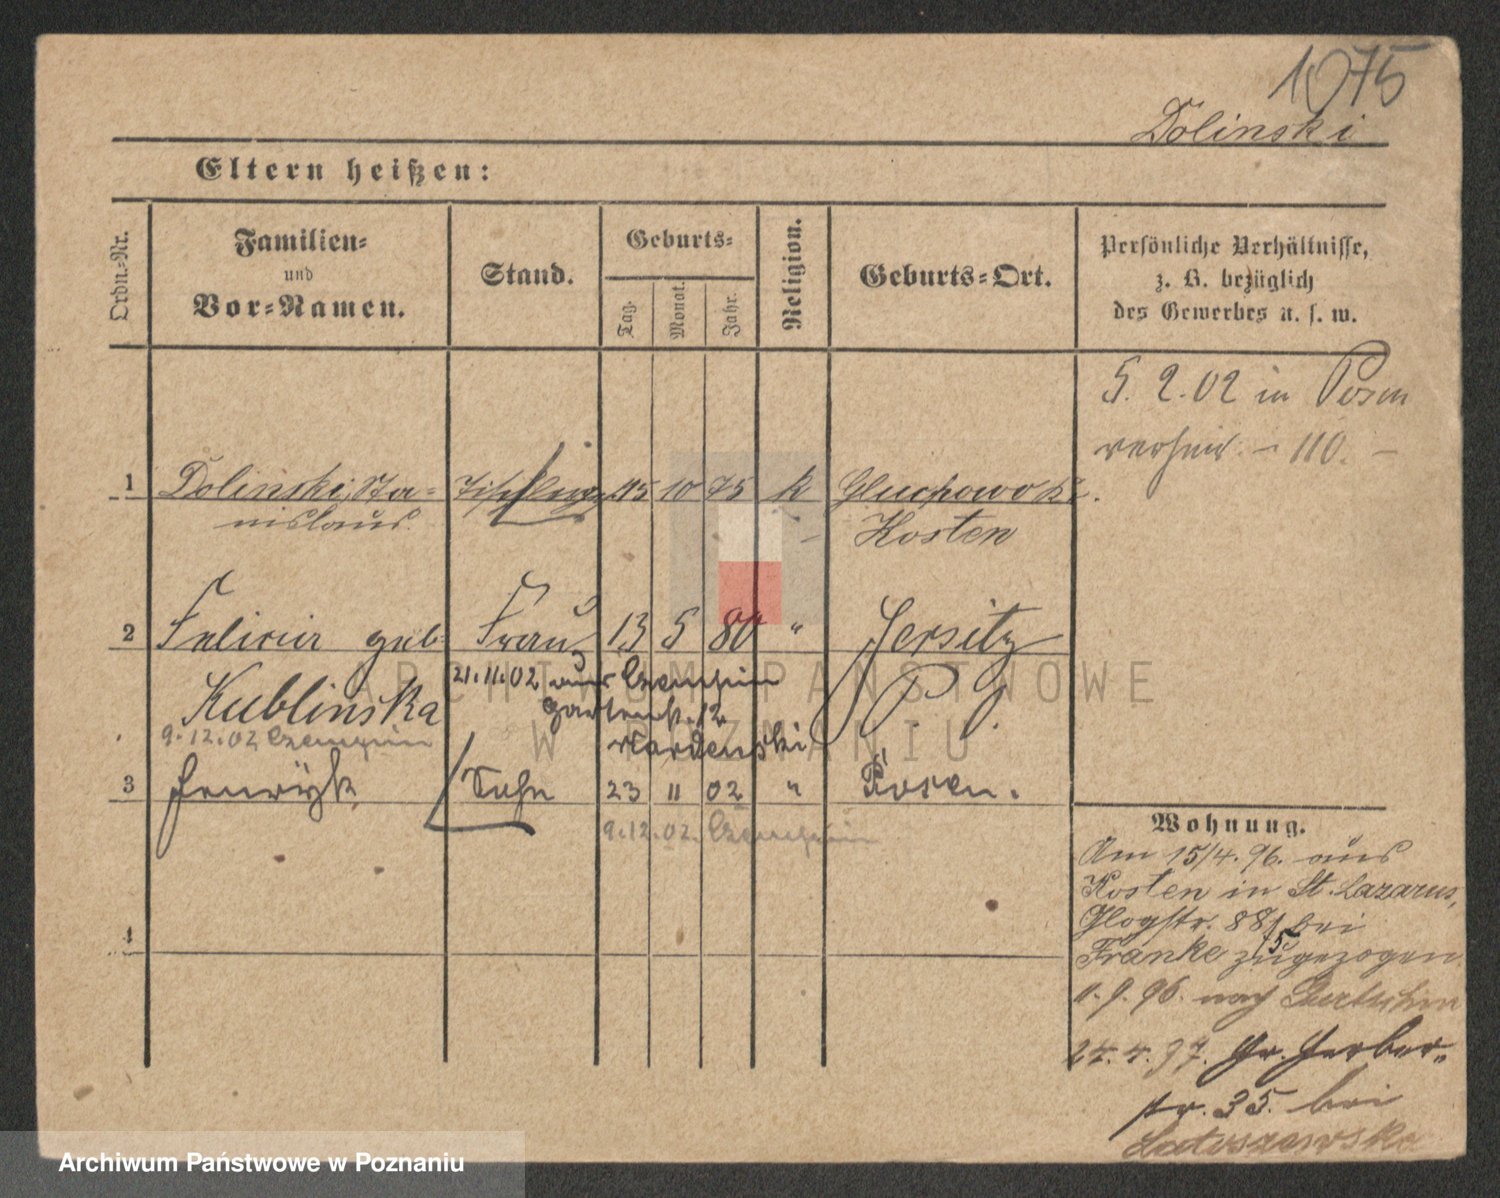 1075
Dolinski
Eltern heißen:
Ordn.-Nr.
Familien-
und
Vor-Namen.
Stand.
Geburts-
Tag.
Monat.
Jahr.
Religion.
Geburts-Ort.
Persönliche Verhältnisse,
z. B. bezüglich
des Gewerbes u. s. w.
5. 2. 02 in Posen
verheir. - 110. -
1 Dolinski, Sta- 15 10 75 k Gluchowo Kr.
nislaus Kosten
2 Felicia geb. Frau 13 5 80 " Jersitz
Kublinska P. J.
21.11.02 aus Czempin
Gartenstr. 12
9.12.02 Czempin
3 Henryk Sohn 23 11 02 " Posen.
9.12.02. Czempin
4
Wohnung.
Am 15/4. 96. aus
Kosten in St. Lazarus,
Glogstr. 88 bei
Franke zugezogen
96. nach
24. 4. 97. Gr. Gerber-
str. 35. bei
Latuszewski
ARCHIWUM PAŃSTWOWE
W POZNANIU
Archiwum Państwowe w Poznaniu